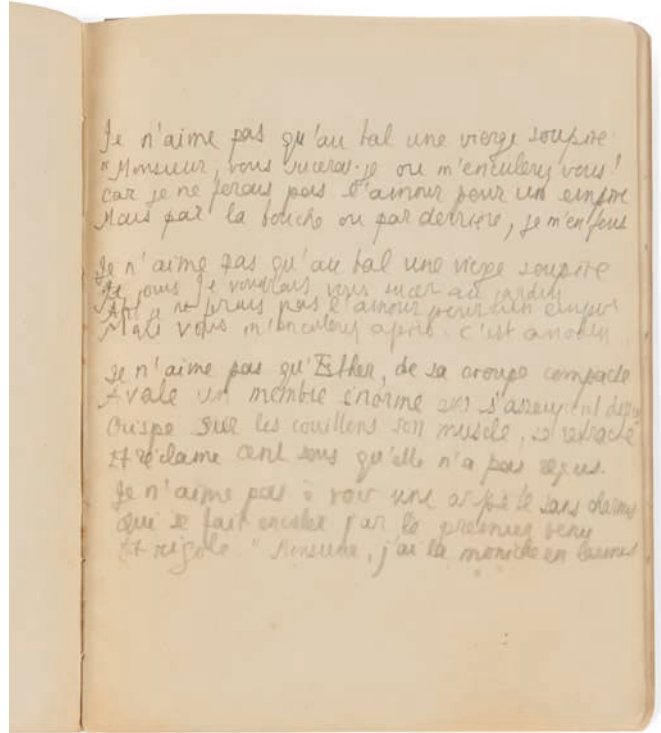 Je n'aime pas qu'au bal une vierge soupire
"Monsieur, vous sucerai-je ou m'enculerez vous!
Car je ne ferais pas l'amour pour un empire
Mais par la bouche ou par derrière, je m'en fous
Je n'aime pas qu'au bal une vierge soupire
Je jouis je voudrais vous sucer au jardin
ne ferais pas l'amour pour un empire
Mais vous m'enculerez après. c'est anodin
Je n'aime pas qu'Esther, de sa croupe compacte
Avale un membre énorme s'asseyant dessus
Crispe sur les couillons son muscle, se rétracte
Et réclame cent sous qu'elle n'a pas reçus.
Je n'aime pas à voir une sans charmes
Qui se fait enculer par le premier venu
Et rigole "Monsieur, j'ai la moniche en larmes